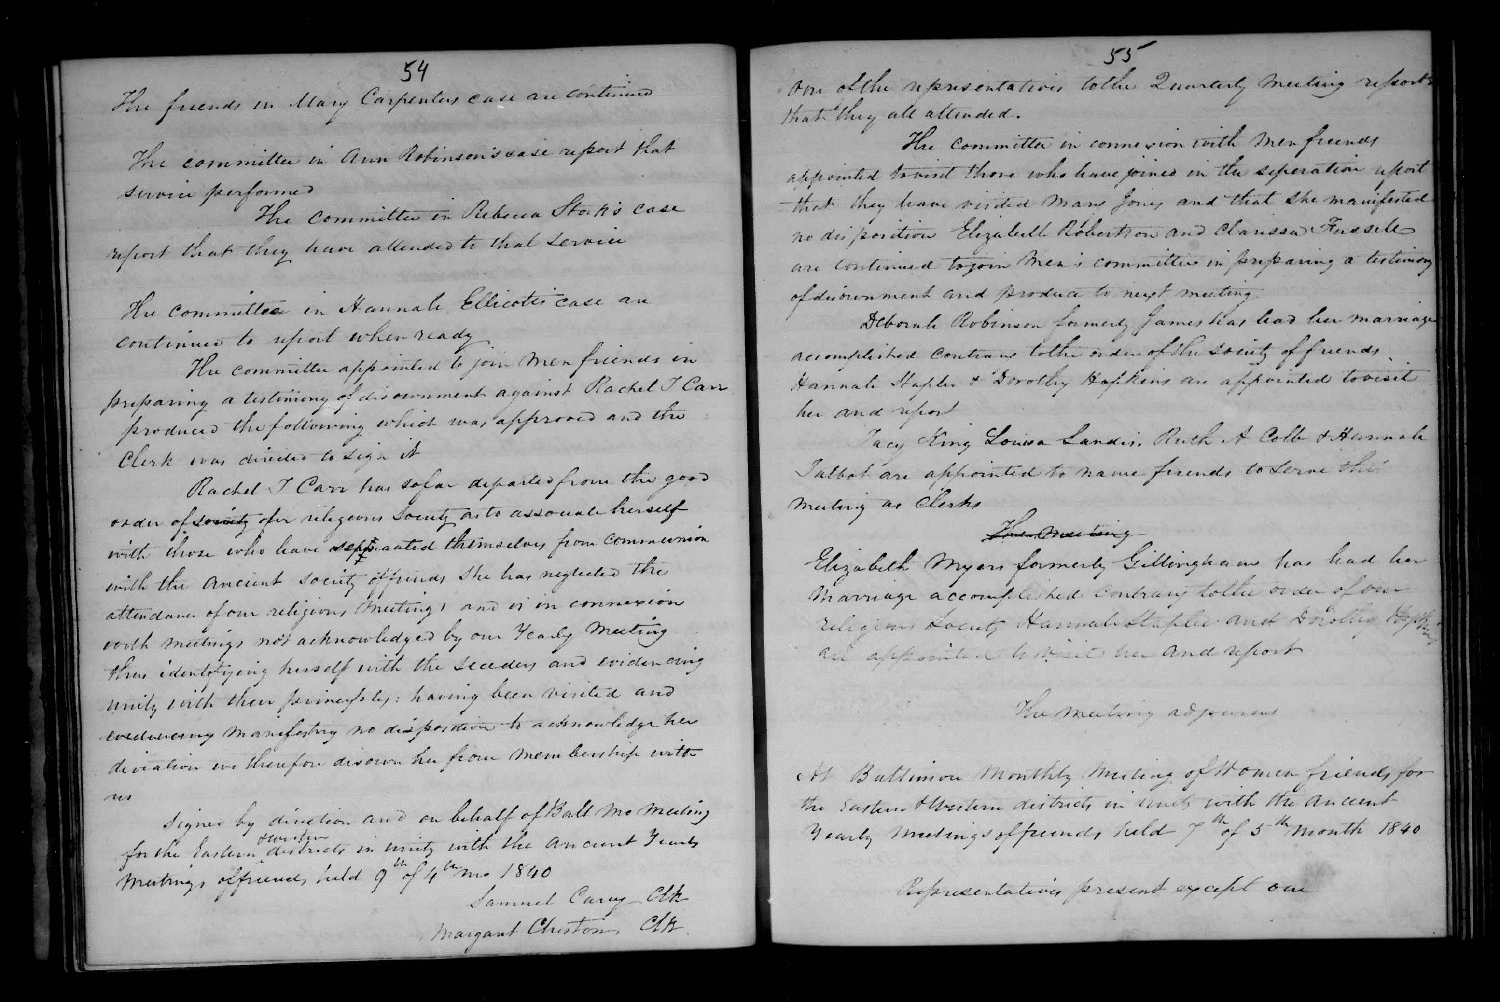 54
The friends in Mary Carpenters case are continued
The committee in Ann Robinson's case report that
service performed
The committee in Rebecca Stork's case
report that they have attended to that service
The committee in Hannah Ellicott's case are
continued to report when ready
The committee appointed to join men friends in
preparing a testimony of disownment against Rachel T Carr
produced the following which was approved and the
Clerk was directed to sign it
Rachel T Carr has so far departed from the good
order of society of our religious Society as to associate herself
with those who have separated themselves from communion
with the ancient society of friends she has neglected the
attendance of our religious meetings and is in connexion
with meetings not acknowledged by our Yearly Meeting
thus identifying herself with the seceders and evidencing
unity with their principles; having been visited and
evidencing manifesting no disposition to acknowledge her
deviation we therefore disown her from membership with
us
Signed by direction and on behalf of Balt Mo Meeting
for the Eastern & western districts in unity with the ancient Yearly
Meetings of friends held 9th of 4th mo 1840
Samuel Carey Clk
Margaret Cheston Clk
55
One of the representatives to the Quarterly Meeting reports
that they all attended.
The committee in connexion with men friends
appointed to visit those who have joined in the seperation report
that they have visited Mary Jones and that she manifested
no disposition Elizabeth Robertson and Clarissa Fussell
are continued to join Men's committee in preparing a testimony
of disownment and produce to next meeting
Deborah Robinson formerly James has had her marriage
accomplished contrary to the order of the society of friends.
Hannah Stapler & Dorothy Hopkins are appointed to visit
her and report
Tacy King Louisa Landis, Ruth A Cobb & Hannah
Talbot are appointed to name friends to serve this
meeting as Clerks
The meeting
Elizabeth Myers formerly Gillingham has had her
Marriage accomplished contrary to the order of our
religious Society Hannah Stapler and Dorothy Hopkins
are appointed to visit her and report
The meeting adjourns
At Baltimore Monthly Meeting of Women friends for
the Eastern & Western districts in unity with the ancient
Yearly Meetings of friends held 7th of 5th month 1840
Representatives present except one